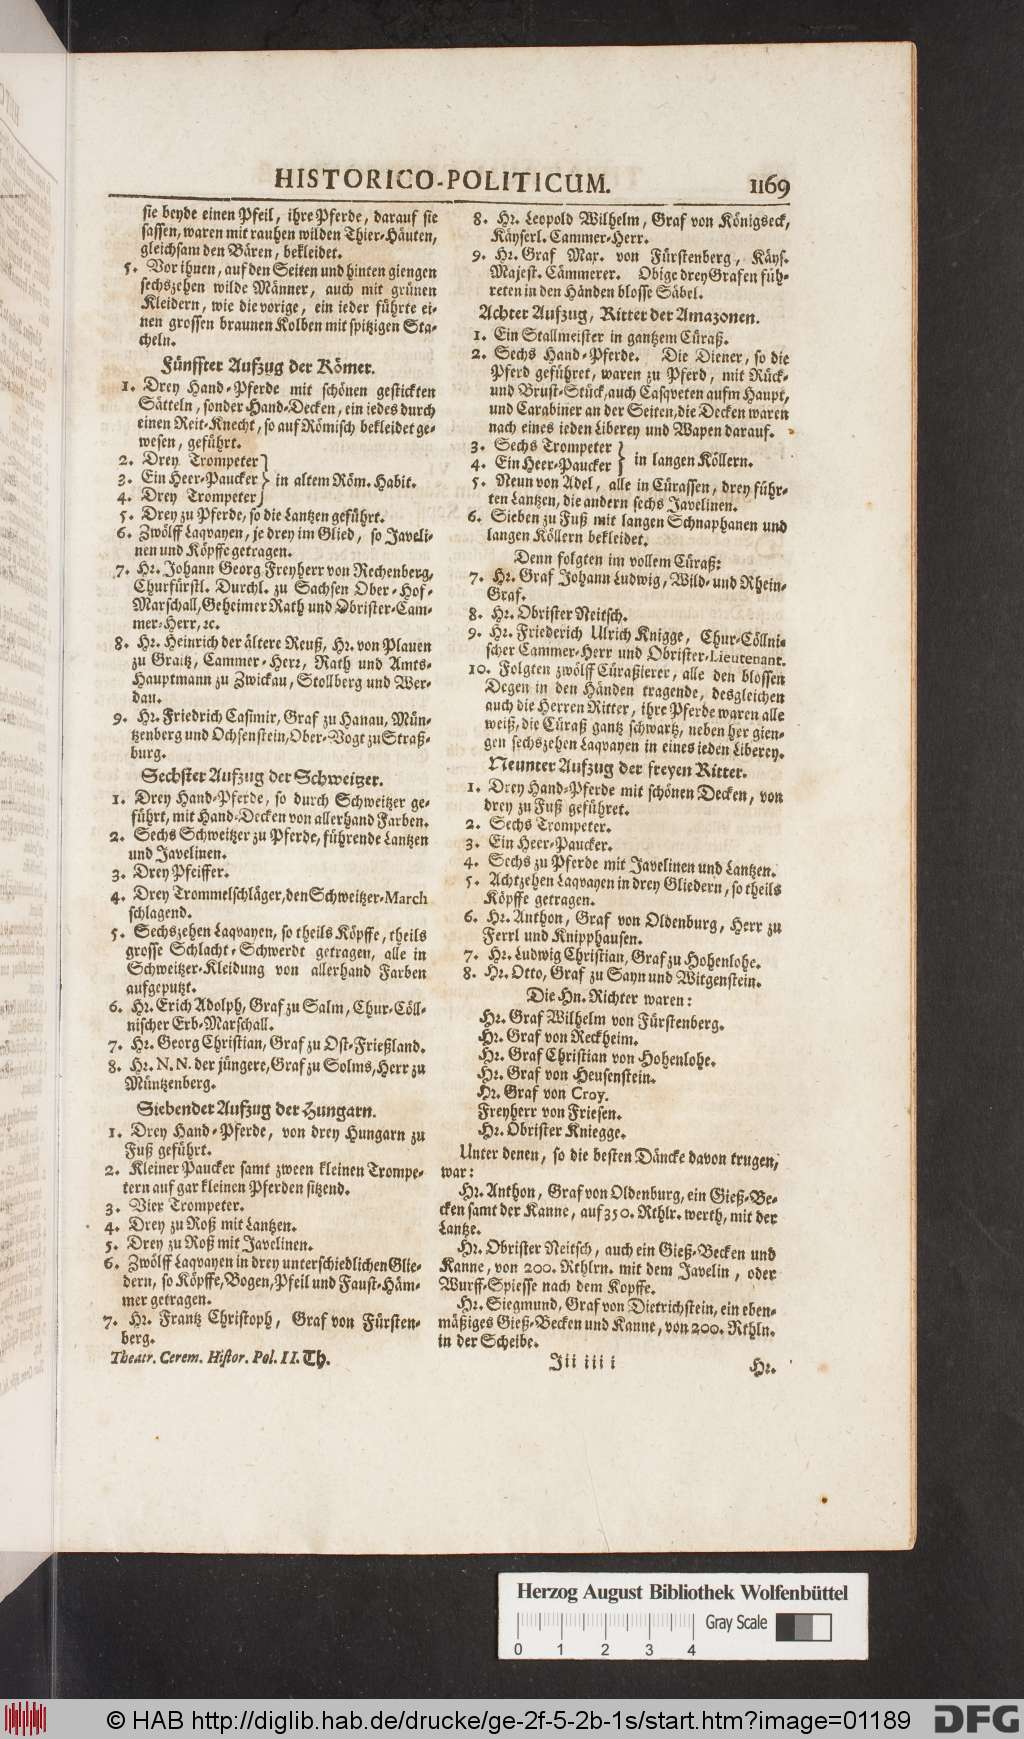 HISTORICO-POLITICUM. 1169
sie beyde einen Pfeil, ihre Pferde, darauf sie
sassen, waren mit rauhen wilden Thier-Häuten,
gleichsam den Bären, bekleidet.
5. Vor ihnen, auf den Seiten und hinten giengen
sechszehen wilde Männer, auch mit grünen
Kleidern, wie die vorige, ein ieder führte ei-
nen grossen braunen Kolben mit spitzigen Sta-
cheln.
Fünffter Aufzug der Römer.
1. Drey Hand-Pferde mit schönen gestickten
Sätteln, sonder Hand-Decken, ein iedes durch
einen Reit-Knecht, so auf Römisch bekleidet ge-
wesen, geführt.
2. Drey Trompeter
3. Ein Heer-Paucker } in altem Röm. Habit.
4. Drey Trompeter
5. Drey zu Pferde, so die Lantzen geführt.
6. Zwölff Laqvayen, je drey im Glied, so Javeli-
nen und Köpffe getragen.
7. Hr. Johann Georg Freyherr von Rechenberg,
Churfürstl. Durchl. zu Sachsen Ober-Hof-
Marschall, Geheimer Rath und Obrister-Cam-
mer-Herr, ꝛc.
8. Hr. Heinrich der ältere Reuß, Hr. von Plauen
zu Graitz, Cammer-Herr, Rath und Amts-
Hauptmann zu Zwickau, Stollberg und Wer-
dau.
9. Hr. Friedrich Casimir, Graf zu Hanau, Mün-
tzenberg und Ochsenstein, Ober-Vogt zu Straß-
burg.
Sechster Aufzug der Schweitzer.
1. Drey Hand-Pferde, so durch Schweitzer ge-
führt, mit Hand-Decken von allerhand Farben.
2. Sechs Schweitzer zu Pferde, führende Lantzen
und Javelinen.
3. Drey Pfeiffer.
4. Drey Trommelschläger, den Schweitzer-March
schlagend.
5. Sechszehen Laqvayen, so theils Köpffe, theils
grosse Schlacht-Schwerdt getragen, alle in
Schweitzer-Kleidung von allerhand Farben
aufgeputzt.
6. Hr. Erich Adolph, Graf zu Salm, Chur-Cöll-
nischer Erb-Marschall.
7. Hr. Georg Christian, Graf zu Ost-Frießland.
8. Hr. N. N. der jüngere, Graf zu Solms, Herr zu
Müntzenberg.
Siebender Aufzug der Hungarn.
1. Drey Hand-Pferde, von drey Hungarn zu
Fuß geführt.
2. Kleiner Paucker samt zween kleinen Trompe-
tern auf gar kleinen Pferden sitzend.
3. Vier Trompeter.
4. Drey zu Roß mit Lantzen.
5. Drey zu Roß mit Javelinen.
6. Zwölff Laqvayen in drey unterschiedlichen Glie-
dern, so Köpffe, Bogen, Pfeil und Faust-Häm-
mer getragen.
7. Hr. Frantz Christoph, Graf von Fürsten-
berg.
Theatr. Cerem. Histor. Pol. II. Th.
8. Hr. Leopold Wilhelm, Graf von Königseck,
Käyserl. Cammer-Herr.
9. Hr. Graf Max. von Fürstenberg, Käys.
Majest. Cämmerer. Obige drey Grafen füh-
reten in den Händen blosse Säbel.
Achter Aufzug, Ritter der Amazonen.
1. Ein Stallmeister in gantzem Cüraß.
2. Sechs Hand-Pferde. Die Diener, so die
Pferd geführet, waren zu Pferd, mit Rück-
und Brust-Stück, auch Casqveten aufm Haupt,
und Carabiner an der Seiten, die Decken waren
nach eines ieden Liberey und Wapen darauf.
3. Sechs Trompeter
4. Ein Heer-Paucker } in langen Köllern.
5. Neun von Adel, alle in Cürassen, drey führ-
ten Lantzen, die andern sechs Javelinen.
6. Sieben zu Fuß mit langen Schnaphanen und
langen Köllern bekleidet.
Denn folgten im vollem Cüraß:
7. Hr. Graf Johann Ludwig, Wild- und Rhein-
Graf.
8. Hr. Obrister Neitsch.
9. Hr. Friederich Ulrich Knigge, Chur-Cöllni-
scher Cammer-Herr und Obrister-Lieutenant.
10. Folgten zwölff Cüraßierer, alle den blossen
Degen in den Händen tragende, desgleichen
auch die Herren Ritter, ihre Pferde waren alle
weiß, die Cüraß gantz schwartz, neben her gien-
gen sechszehen Laqvayen in eines ieden Liberey.
Neunter Aufzug der freyen Ritter.
1. Drey Hand-Pferde mit schönen Decken, von
drey zu Fuß geführet.
2. Sechs Trompeter.
3. Ein Heer-Paucker.
4. Sechs zu Pferde mit Javelinen und Lantzen.
5. Achtzehen Laqvayen in drey Gliedern, so theils
Köpffe getragen.
6. Hr. Anthon, Graf von Oldenburg, Herr zu
Ferrl und Knipphausen.
7. Hr. Ludwig Christian, Graf zu Hohenlohe.
8. Hr. Otto, Graf zu Sayn und Witgenstein.
Die Hn. Richter waren:
Hr. Graf Wilhelm von Fürstenberg.
Hr. Graf von Reckheim.
Hr. Graf Christian von Hohenlohe.
Hr. Graf von Heusenstein.
Hr. Graf von Croy.
Freyherr von Friesen.
Hr. Obrister Kniegge.
Unter denen, so die besten Däncke davon trugen,
war:
Hr. Anthon, Graf von Oldenburg, ein Gieß-Be-
cken samt der Kanne, auf 350. Rthlr. werth, mit der
Lantze.
Hr. Obrister Neitsch, auch ein Gieß-Becken und
Kanne, von 200. Rthlrn. mit dem Javelin, oder
Wurff-Spiesse nach dem Kopffe.
Hr. Siegmund, Graf von Dietrichstein, ein eben-
mäßiges Gieß-Becken und Kanne, von 200. Rthln.
in der Scheibe.
Jii iii i Hr.
Herzog August Bibliothek Wolfenbüttel
Gray Scale
0 1 2 3 4
© HAB http://diglib.hab.de/drucke/ge-2f-5-2b-1s/start.htm?image=01189 DFG